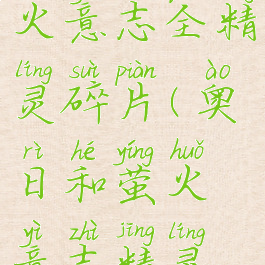 火意志全精
líng suì piàn ào
灵碎片(奥
rì hé yíng huǒ
日和萤火
yì zhì jīng líng
意志精灵